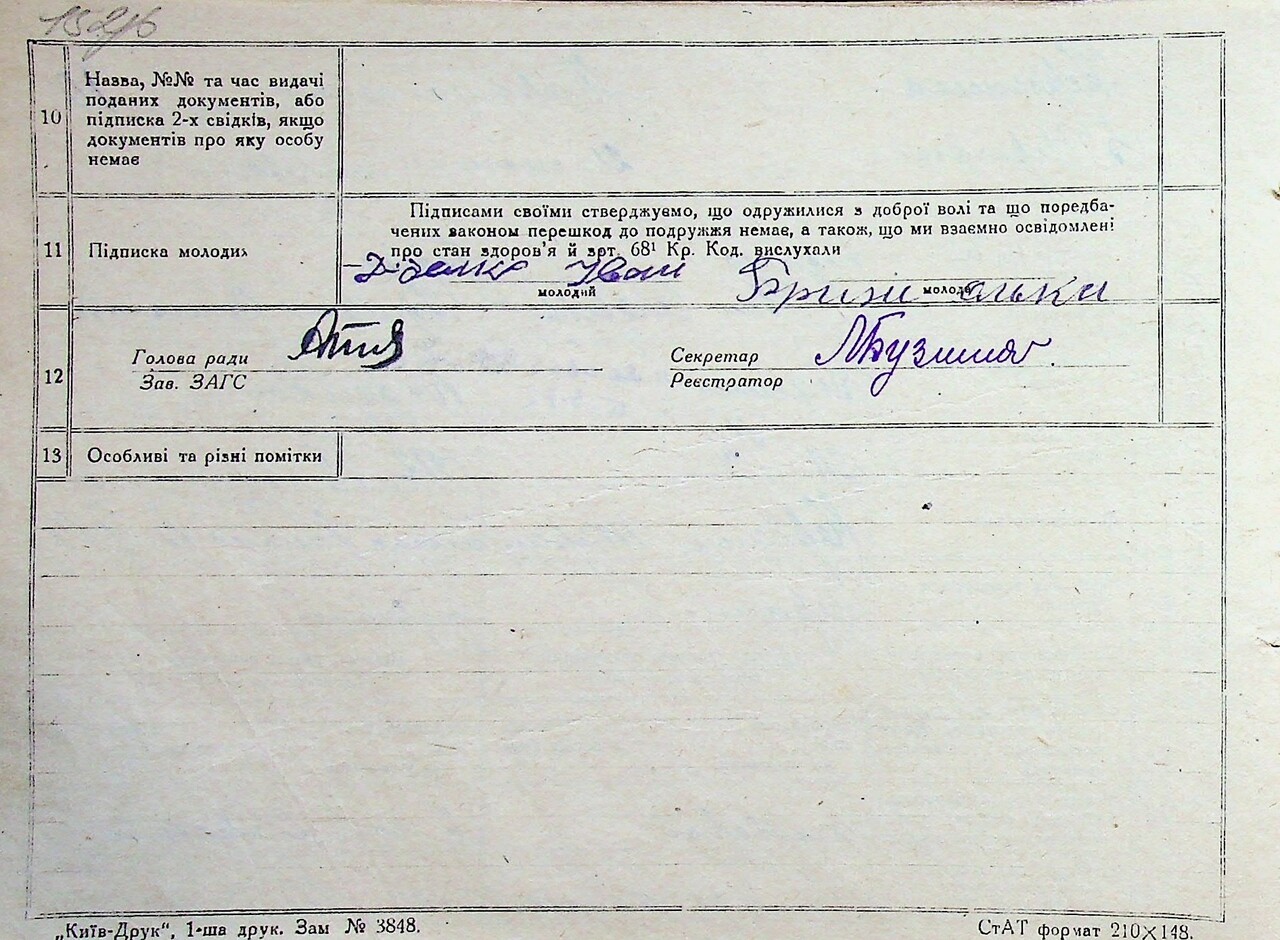 10
Назва, №№ та час видачі
поданих документів, або
підписка 2-х свідків, якщо
документів про яку особу
немає
11
Підписка молодих
Підписами своїми стверджуємо, що одружилися з доброї волі та що поредба-
чених законом перешкод до подружжя немає, а також, що ми взаємно освідомлені
про стан здоров'я й арт. 68¹ Кр. Код. вислухали
Іван
молодий
молода
12
Голова ради
Зав. ЗАГС
Секретар
Реєстратор
13
Особливі та різні помітки
„Київ-Друк“, 1-ша друк. Зам № 3848.
СтАТ формат 210×148.